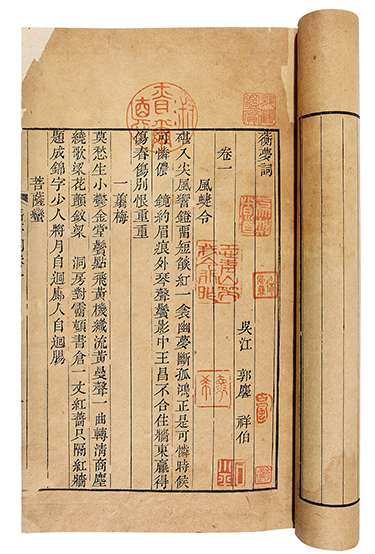 蘅夢詞
吳江 郭麐 祥伯
卷一
風蜨令
入尖風窄鐙留短燄紅一衾幽夢斷孤鴻正是可憐時候
可憐儂 鏡約眉痕外琴聲鬢影中王昌不合住牆東贏得
傷春傷別恨重重
一翦梅
莫愁生小鬱金堂鬢點飛黃機織流黃曼聲一曲轉清商塵
繞歌梁花顫釵梁 洞房對霤頓書倉一丈紅薔只隔紅牆
題成錦字少人將月自迴廊人自迴腸
菩薩蠻